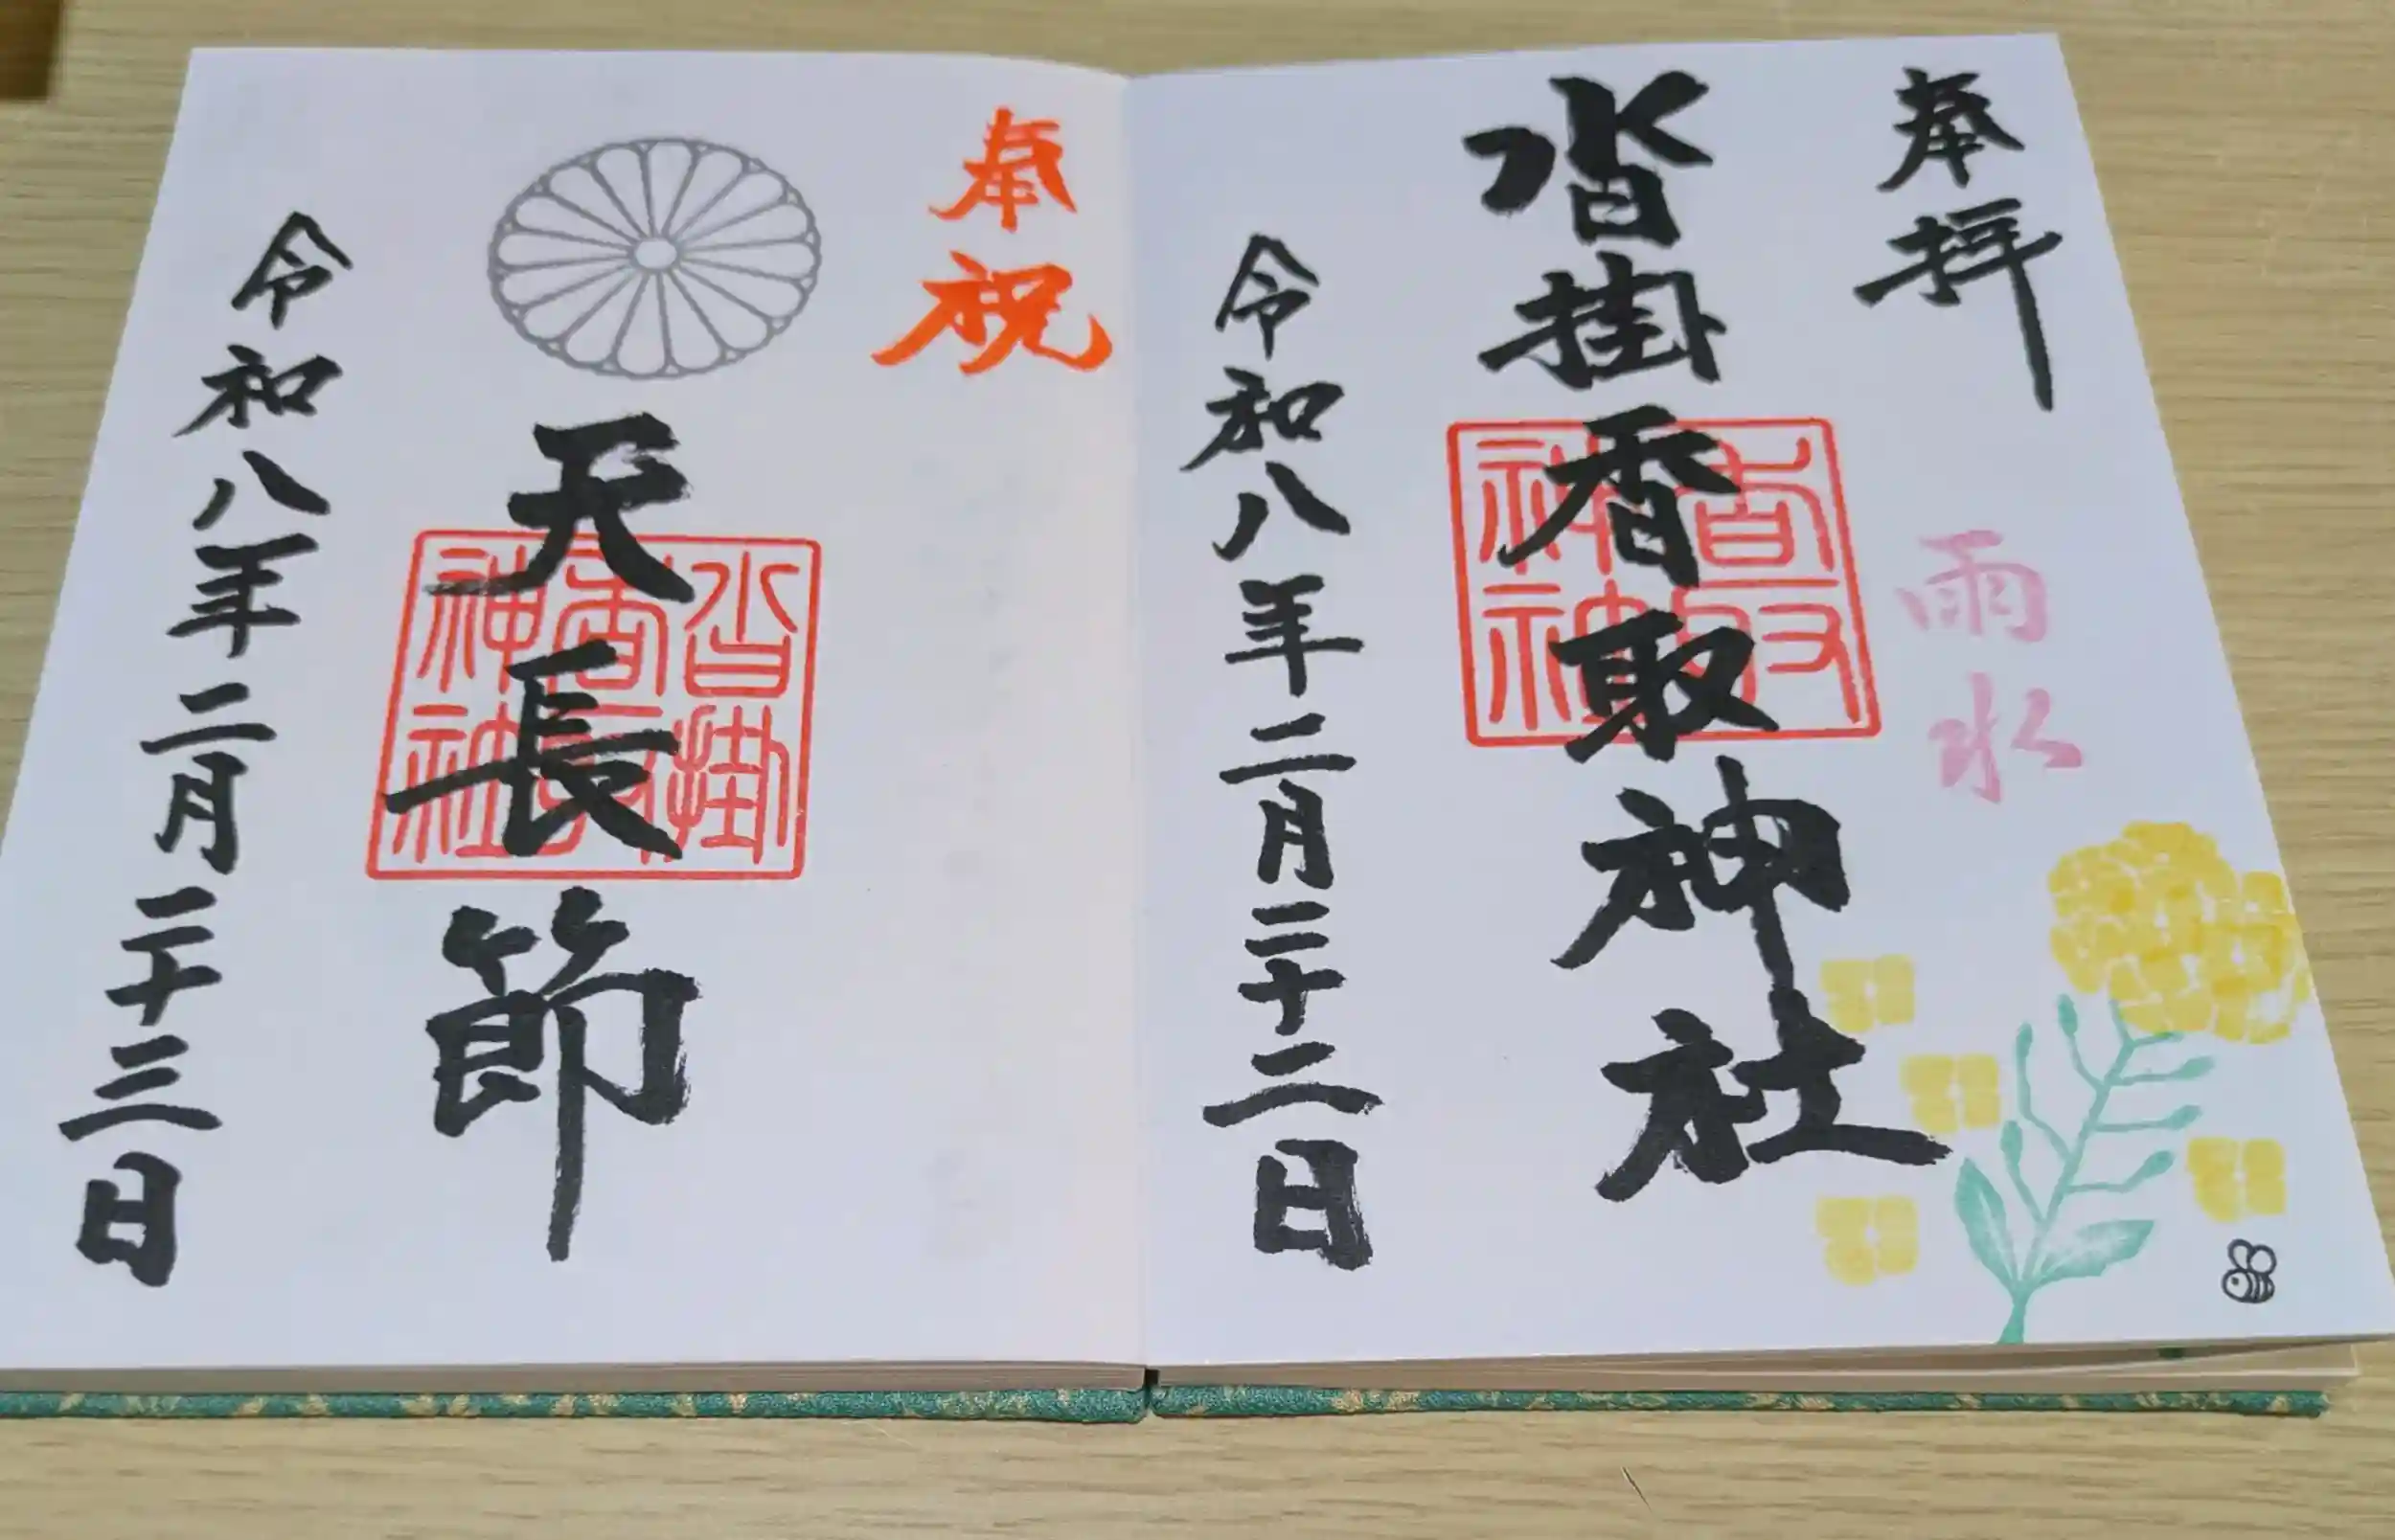 奉拝
雨水
沓掛香取神社
香取
神社
令和八年二月二十二日
奉祝
天長節
沓掛
香取
神社
令和八年二月二十三日